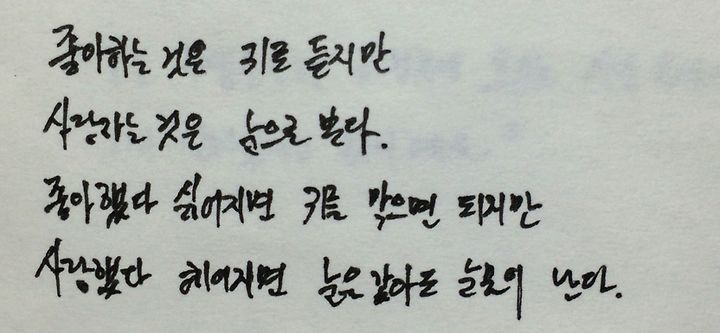 좋아하는 것은 귀로 듣지만
사랑하는 것은 눈으로 본다.
좋아했다 싫어지면 귀를 막으면 되지만
사랑했다 헤어지면 눈을 감아도 눈물이 난다.